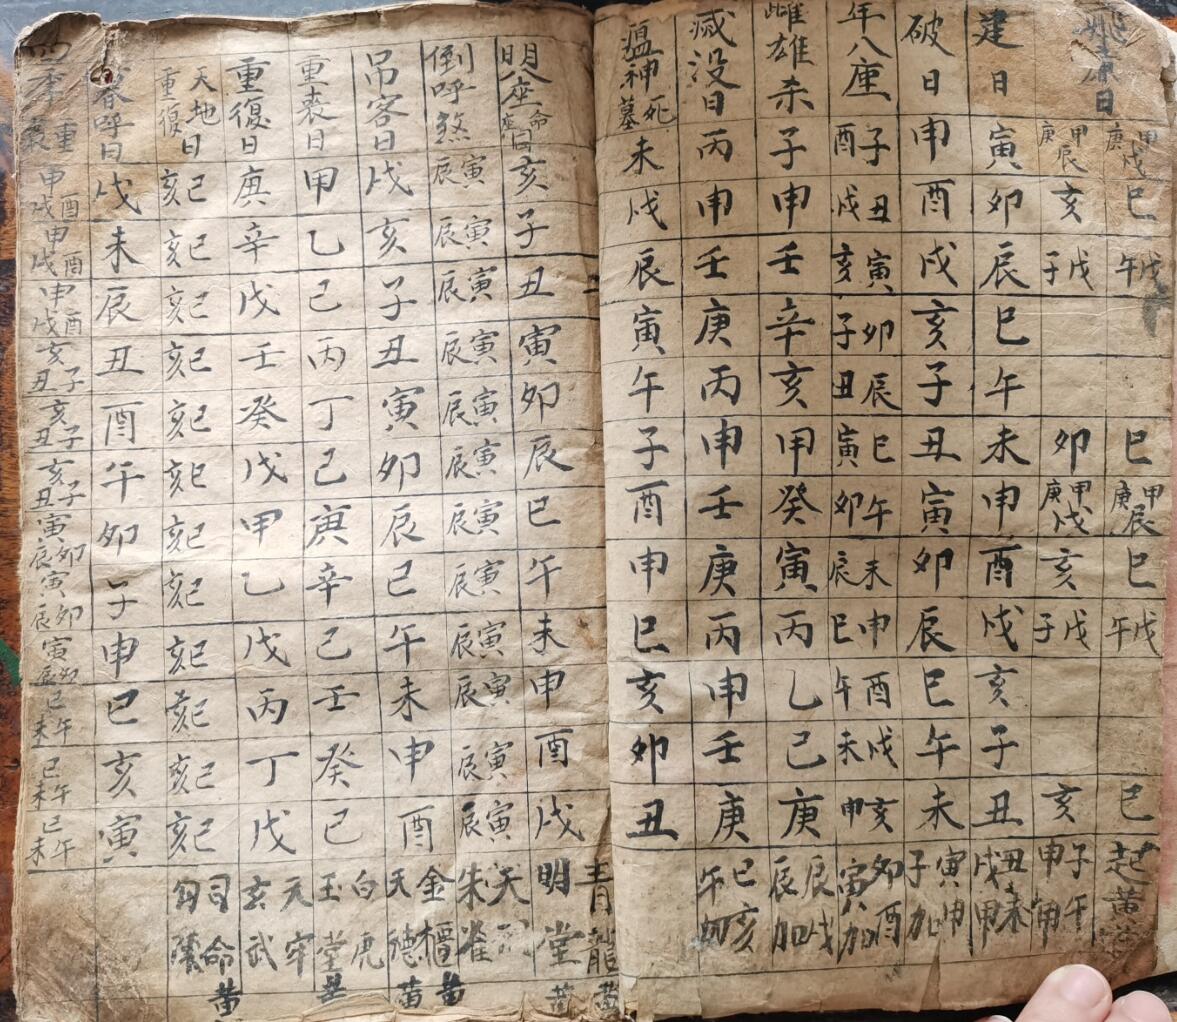 建日 寅 卯 辰 巳 午 未 申 酉 戌 亥 子 丑
破日 申 酉 戌 亥 子 丑 寅 卯 辰 巳 午 未
年八座 子酉 丑戌 寅亥 卯子 辰丑 巳寅 午卯 未辰 申巳 酉午 戌未 亥申
雌雄杀 子 申 壬 辛 亥 甲 癸 寅 丙 乙 己 庚
滅没日 丙 申 壬 庚 丙 申 壬 庚 丙 申 壬 庚
瘟神死墓 未 戌 辰 寅 午 子 酉 申 巳 亥 卯 丑
起黄
子午 申
丑未 戌
寅申加子
卯酉加寅
辰戌加辰
巳亥加午
八座命座同 亥 子 丑 寅 卯 辰 巳 午 未 申 酉 戌
倒呼煞 寅辰 寅辰 寅辰 寅辰 寅辰 寅辰 寅辰 寅辰 寅辰 寅辰 寅辰 寅辰
吊客日 戌 亥 子 丑 寅 卯 辰 巳 午 未 申 酉
重喪日 甲 乙 己 丙 丁 己 庚 辛 己 壬 癸 己
重復日 庚 辛 戊 壬 癸 戊 甲 乙 戊 丙 丁 戊
天地重復日 巳亥 巳亥 巳亥 巳亥 巳亥 巳亥 巳亥 巳亥 巳亥 巳亥 巳亥 巳亥
呼日 戌 未 辰 丑 酉 午 卯 子 申 巳 亥 寅
申酉戌 申酉戌 申酉戌 亥子丑 亥子丑 亥子丑 寅卯辰 寅卯辰 寅卯辰 巳午未 巳午未 巳午未
青龍黄
明堂黄
天刑
朱雀
金櫃黄
天德黄
白虎
玉堂黄
天牢
玄武
司命黄
勾陳